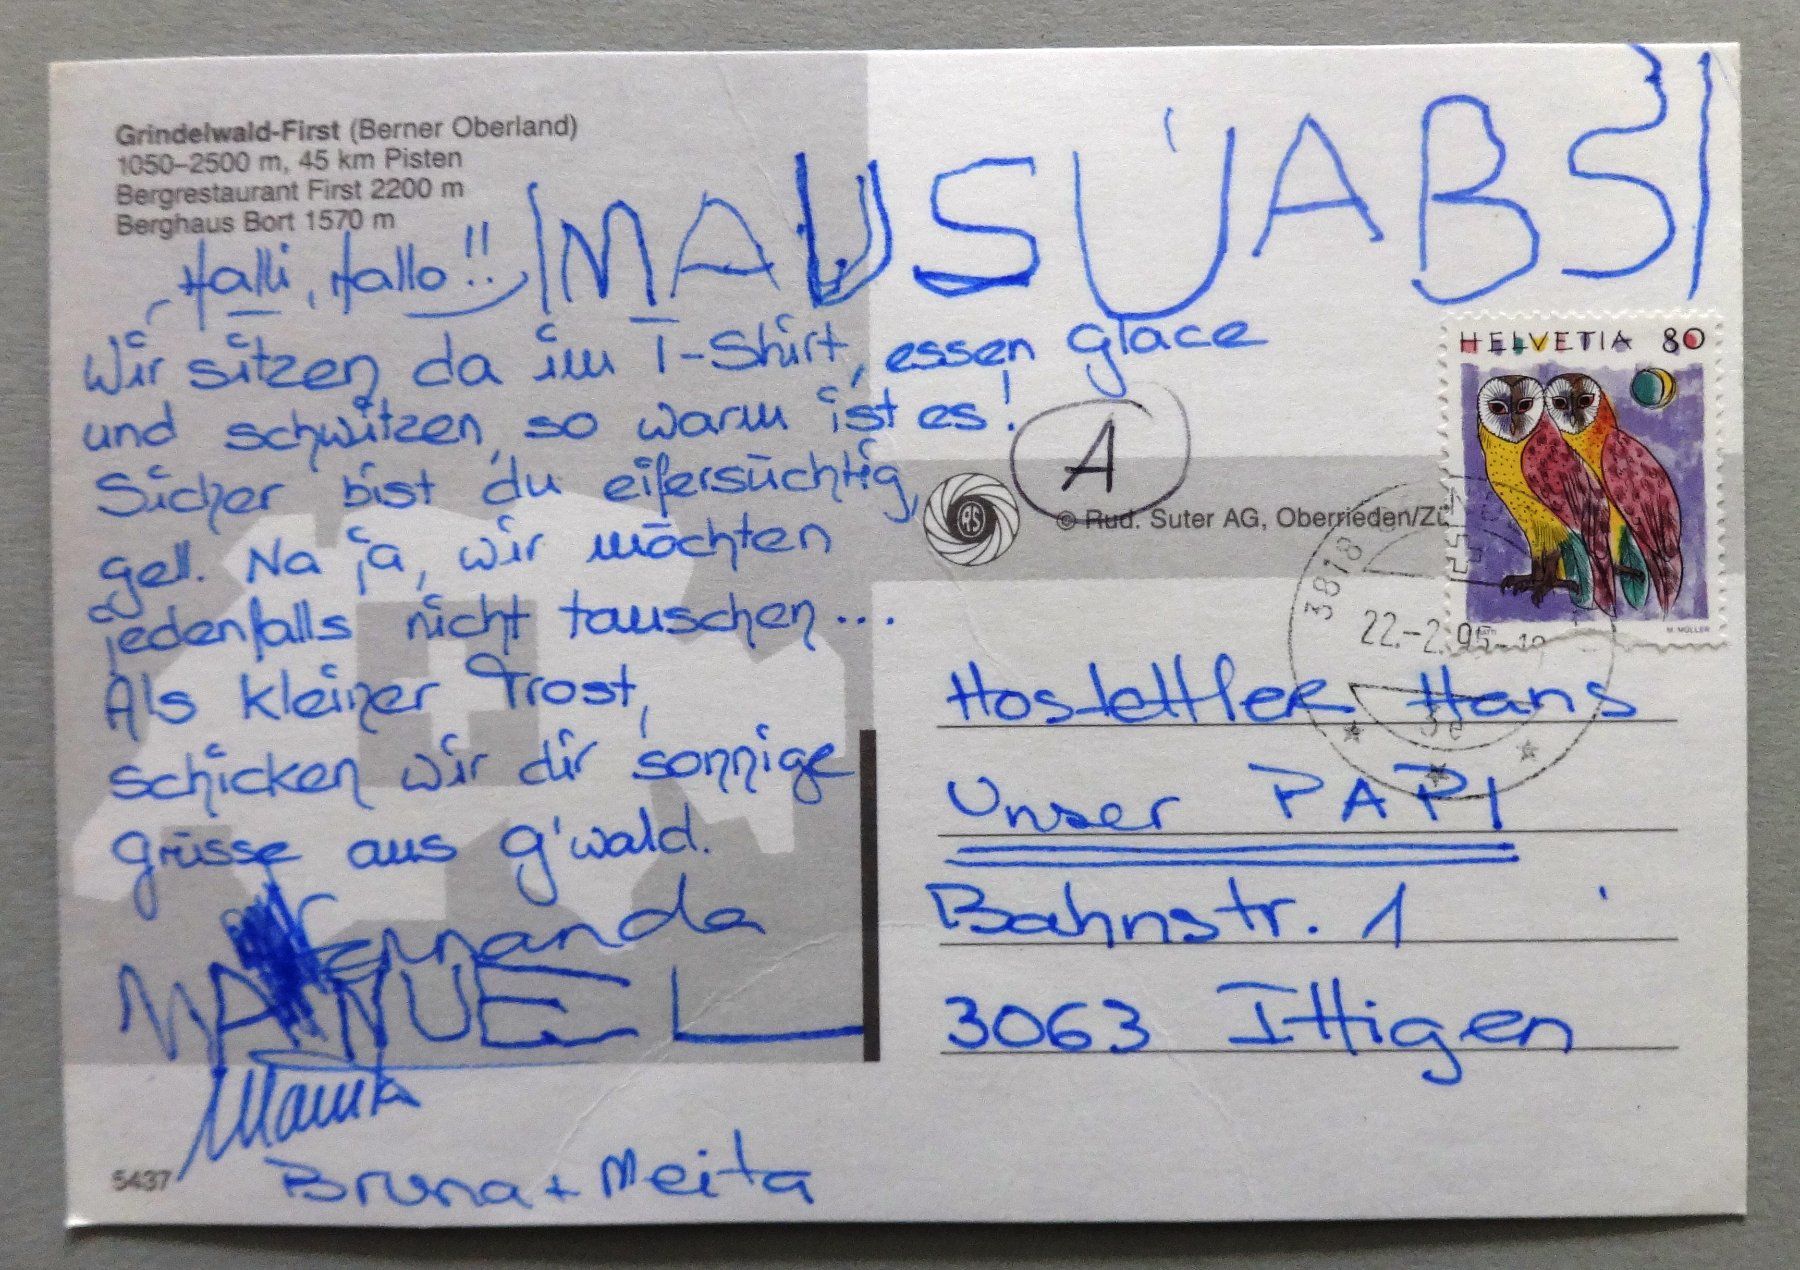 Grindelwald-First (Berner Oberland)
1050–2500 m, 45 km Pisten
Bergrestaurant First 2200 m
Berghaus Bort 1570 m
Halli, Hallo!! MAUSÜABSI
Wir sitzen da im T-Shirt, essen glace
und schwitzen, so warm ist es!
Sicher bist du eifersüchtig,
gell. Na ja, wir möchten
jedenfalls nicht tauschen...
Als kleiner Trost,
schicken wir dir sonnige
grüsse aus g'wald.
Fernanda
MANUEL
Bruna + Meita
5437
A
RS
© Rud. Suter AG, Oberrieden/Zü
HELVETIA 80
M. MÜLLER
3818
22.-2.95-18
Hostettler Hans
Unser PAPI
Bahnstr. 1
3063 Ittigen